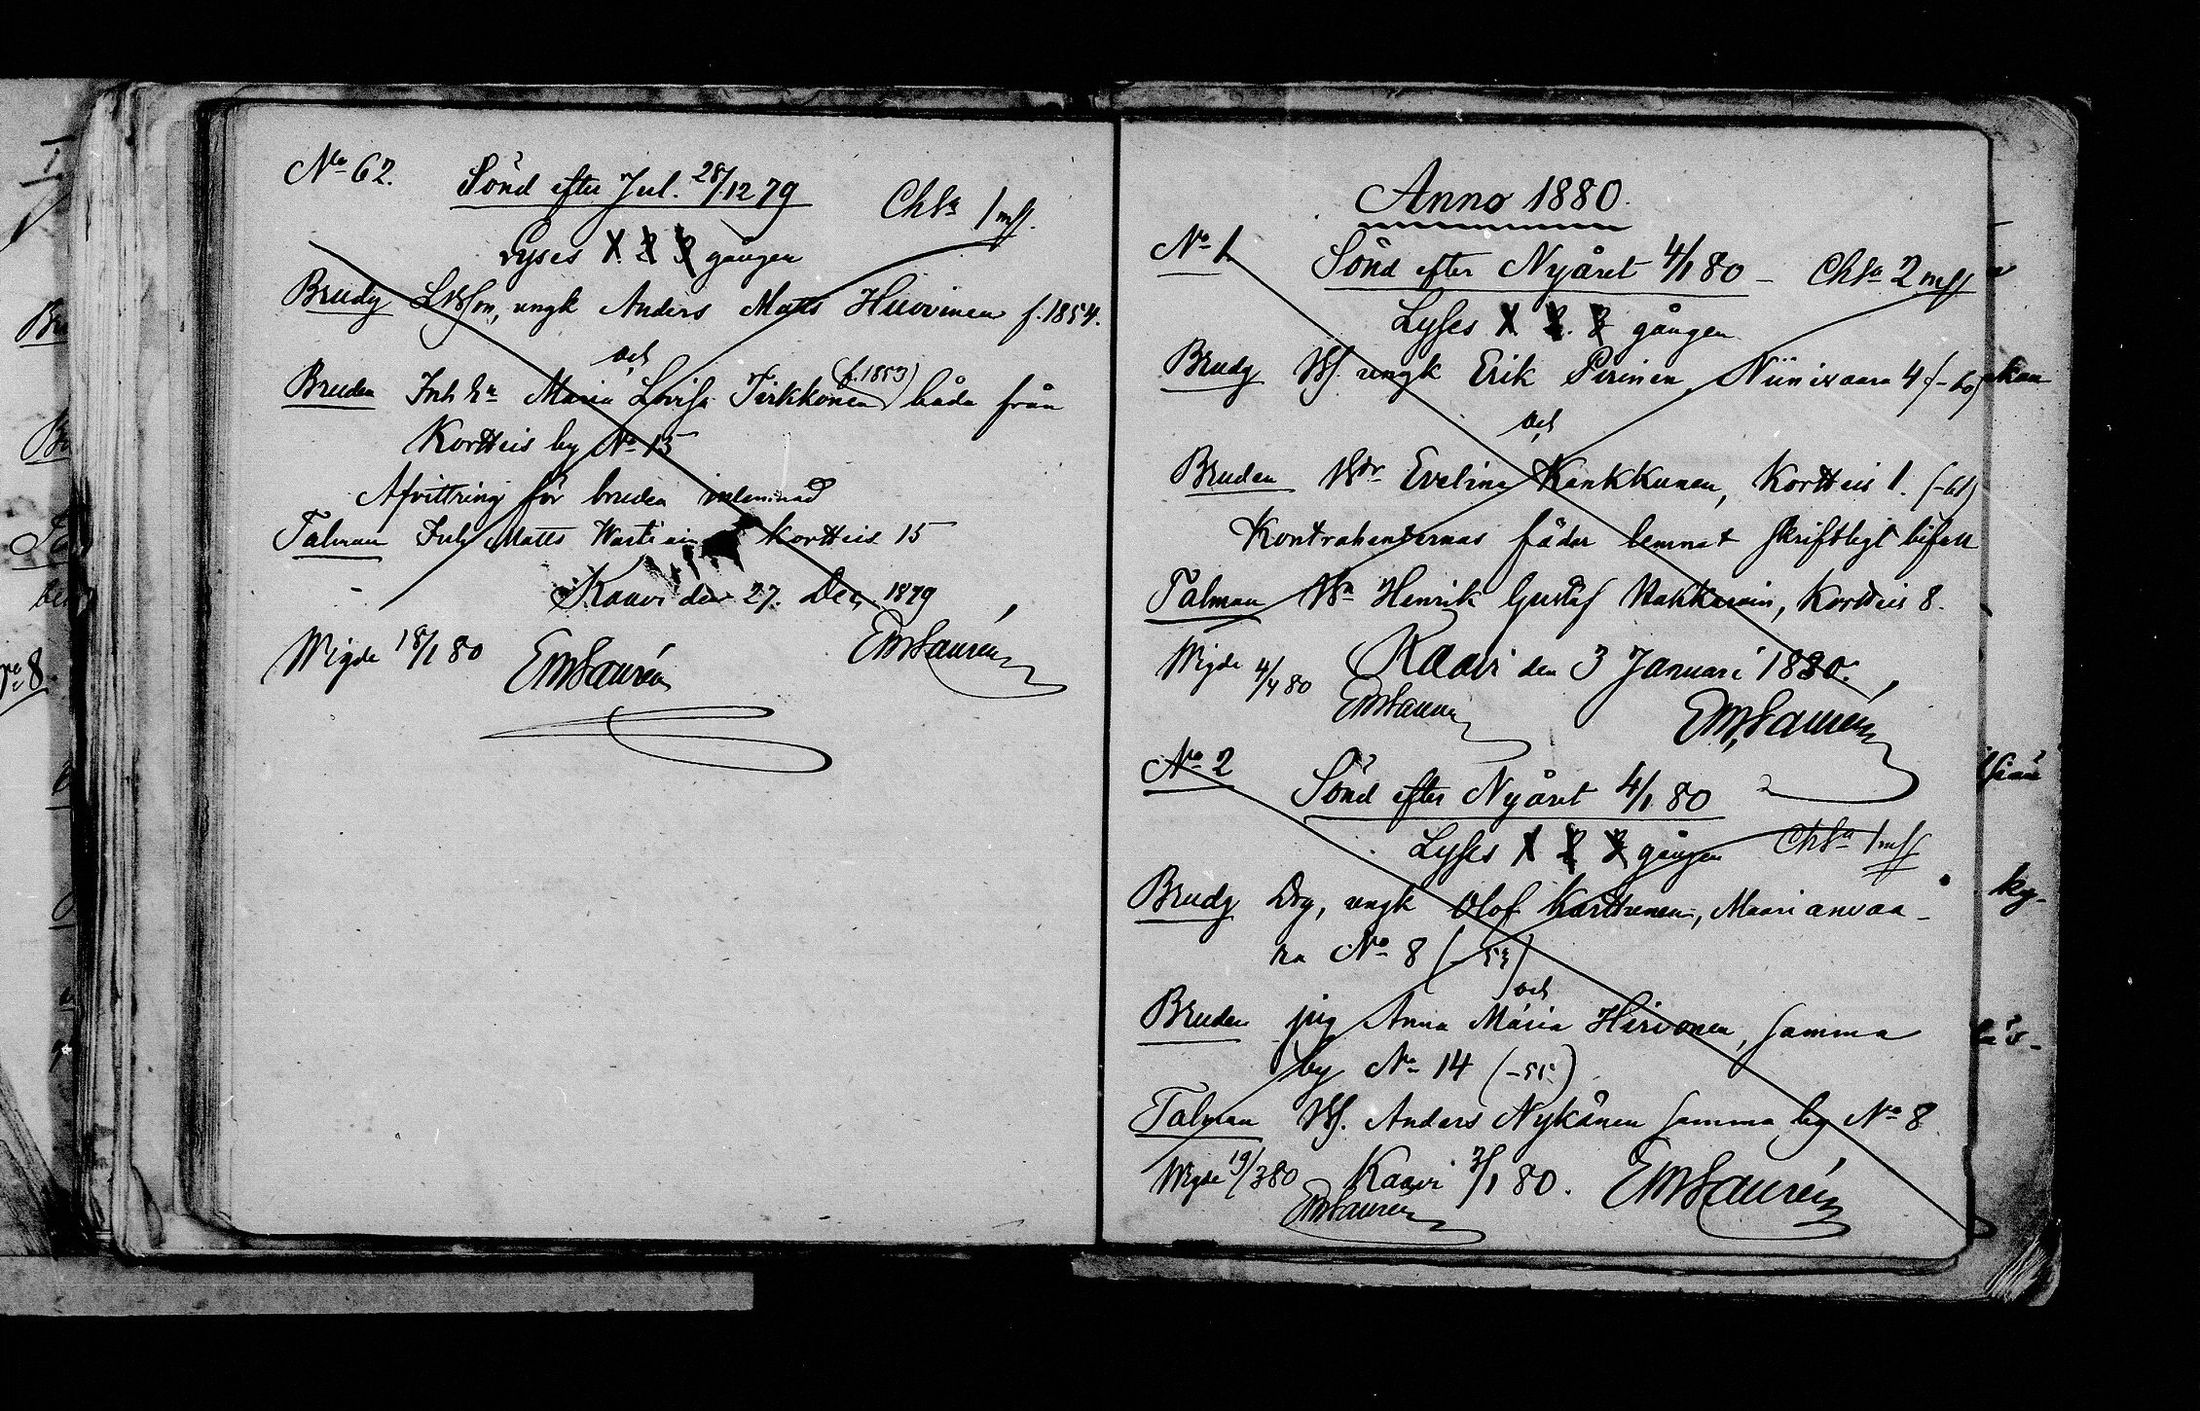 No 62.
Sönd efter Jul. 28/12 79
Chka 1 mk.
Lyses 1. 2. 3 gången
Brudg ungk Anders Matts Huovinen f. 1854.
och
Bruden Inh ha Maria Lovisa Tirkkonen (f. 1853) båda från
Kortteis by No 15
Afvittring för bruden inlemnad
Talman Inh Matts Kortteis 15
Kaavi den 27. Dec. 1879
EMSaurén
Wigde 18/1 80 EMSaurén
Anno 1880.
No 1
Sönd efter Nyåret 4/1 80 - Chka 2 mk
Lyses 1. 2. 3 gången
Brudg ungk Erik Pirinen, Niinivaara 4 (-60)
och
Bruden Evelina Kankkunen, Kortteis 1. (-61)
Kontrahenternas fäder lemnat skriftligt bifall
Talman Henrik Gustaf Kortteis 8.
Wigde 4/4 80 Kaavi den 3 Januari 1880.
EMSaurén EMSaurén
No 2
Sönd efter Nyåret 4/1 80
Lyses 1 2 3 gången Chka 1 mk
Brudg Drg, ungk Olof Karttunen, Maarianvaa-
ra No 8 (-53)
och
Bruden pig Anna Maria Hirvonen, samma
by No 14 (-55)
Talman Anders Nykänen samma by No 8
Wigde 19/3 80 Kaavi 3/1 80. EMSaurén
EMSaurén